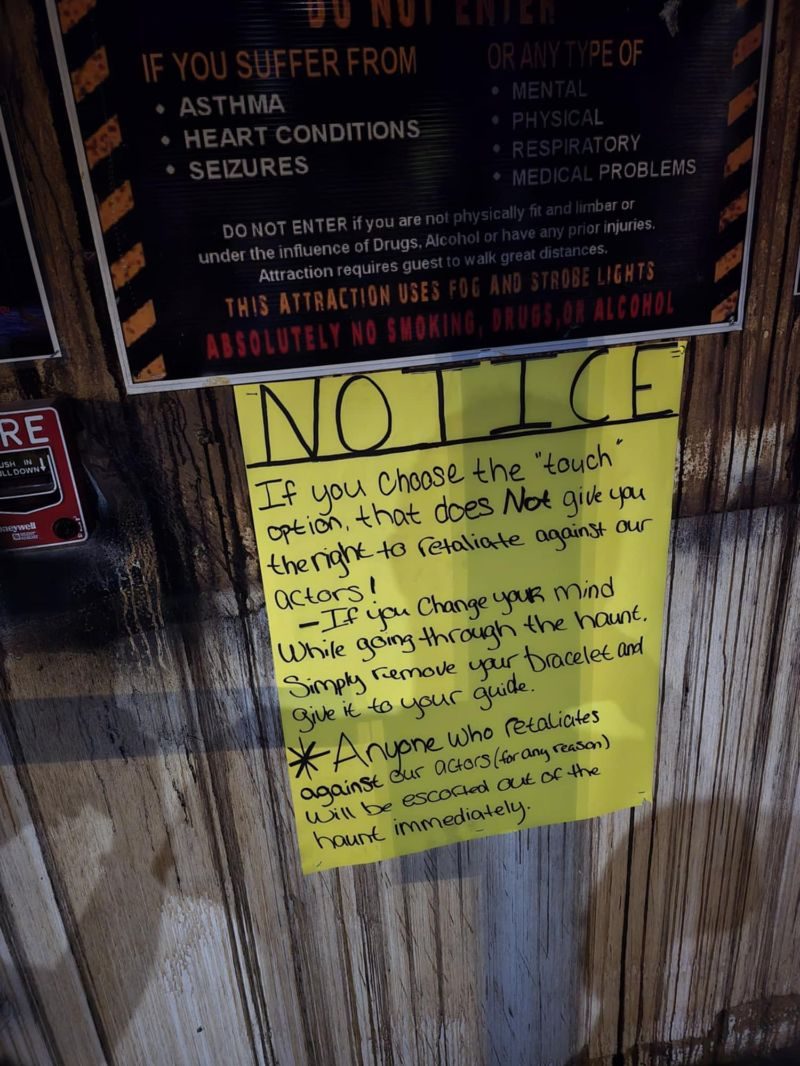 DO NOT ENTER
IF YOU SUFFER FROM
• ASTHMA
• HEART CONDITIONS
• SEIZURES
OR ANY TYPE OF
• MENTAL
• PHYSICAL
• RESPIRATORY
• MEDICAL PROBLEMS
DO NOT ENTER if you are not physically fit and limber or
under the influence of Drugs, Alcohol or have any prior injuries.
Attraction requires guest to walk great distances.
THIS ATTRACTION USES FOG AND STROBE LIGHTS
ABSOLUTELY NO SMOKING, DRUGS, OR ALCOHOL
RE
USH IN
LL DOWN
neywell
NOTICE
If you choose the "touch"
option, that does Not give you
the right to retaliate against our
actors!
- If you Change your mind
While going through the haunt.
Simply remove your bracelet and
give it to your guide.
* Anyone who retaliates
against our actors (for any reason)
will be escorted out of the
haunt immediately.